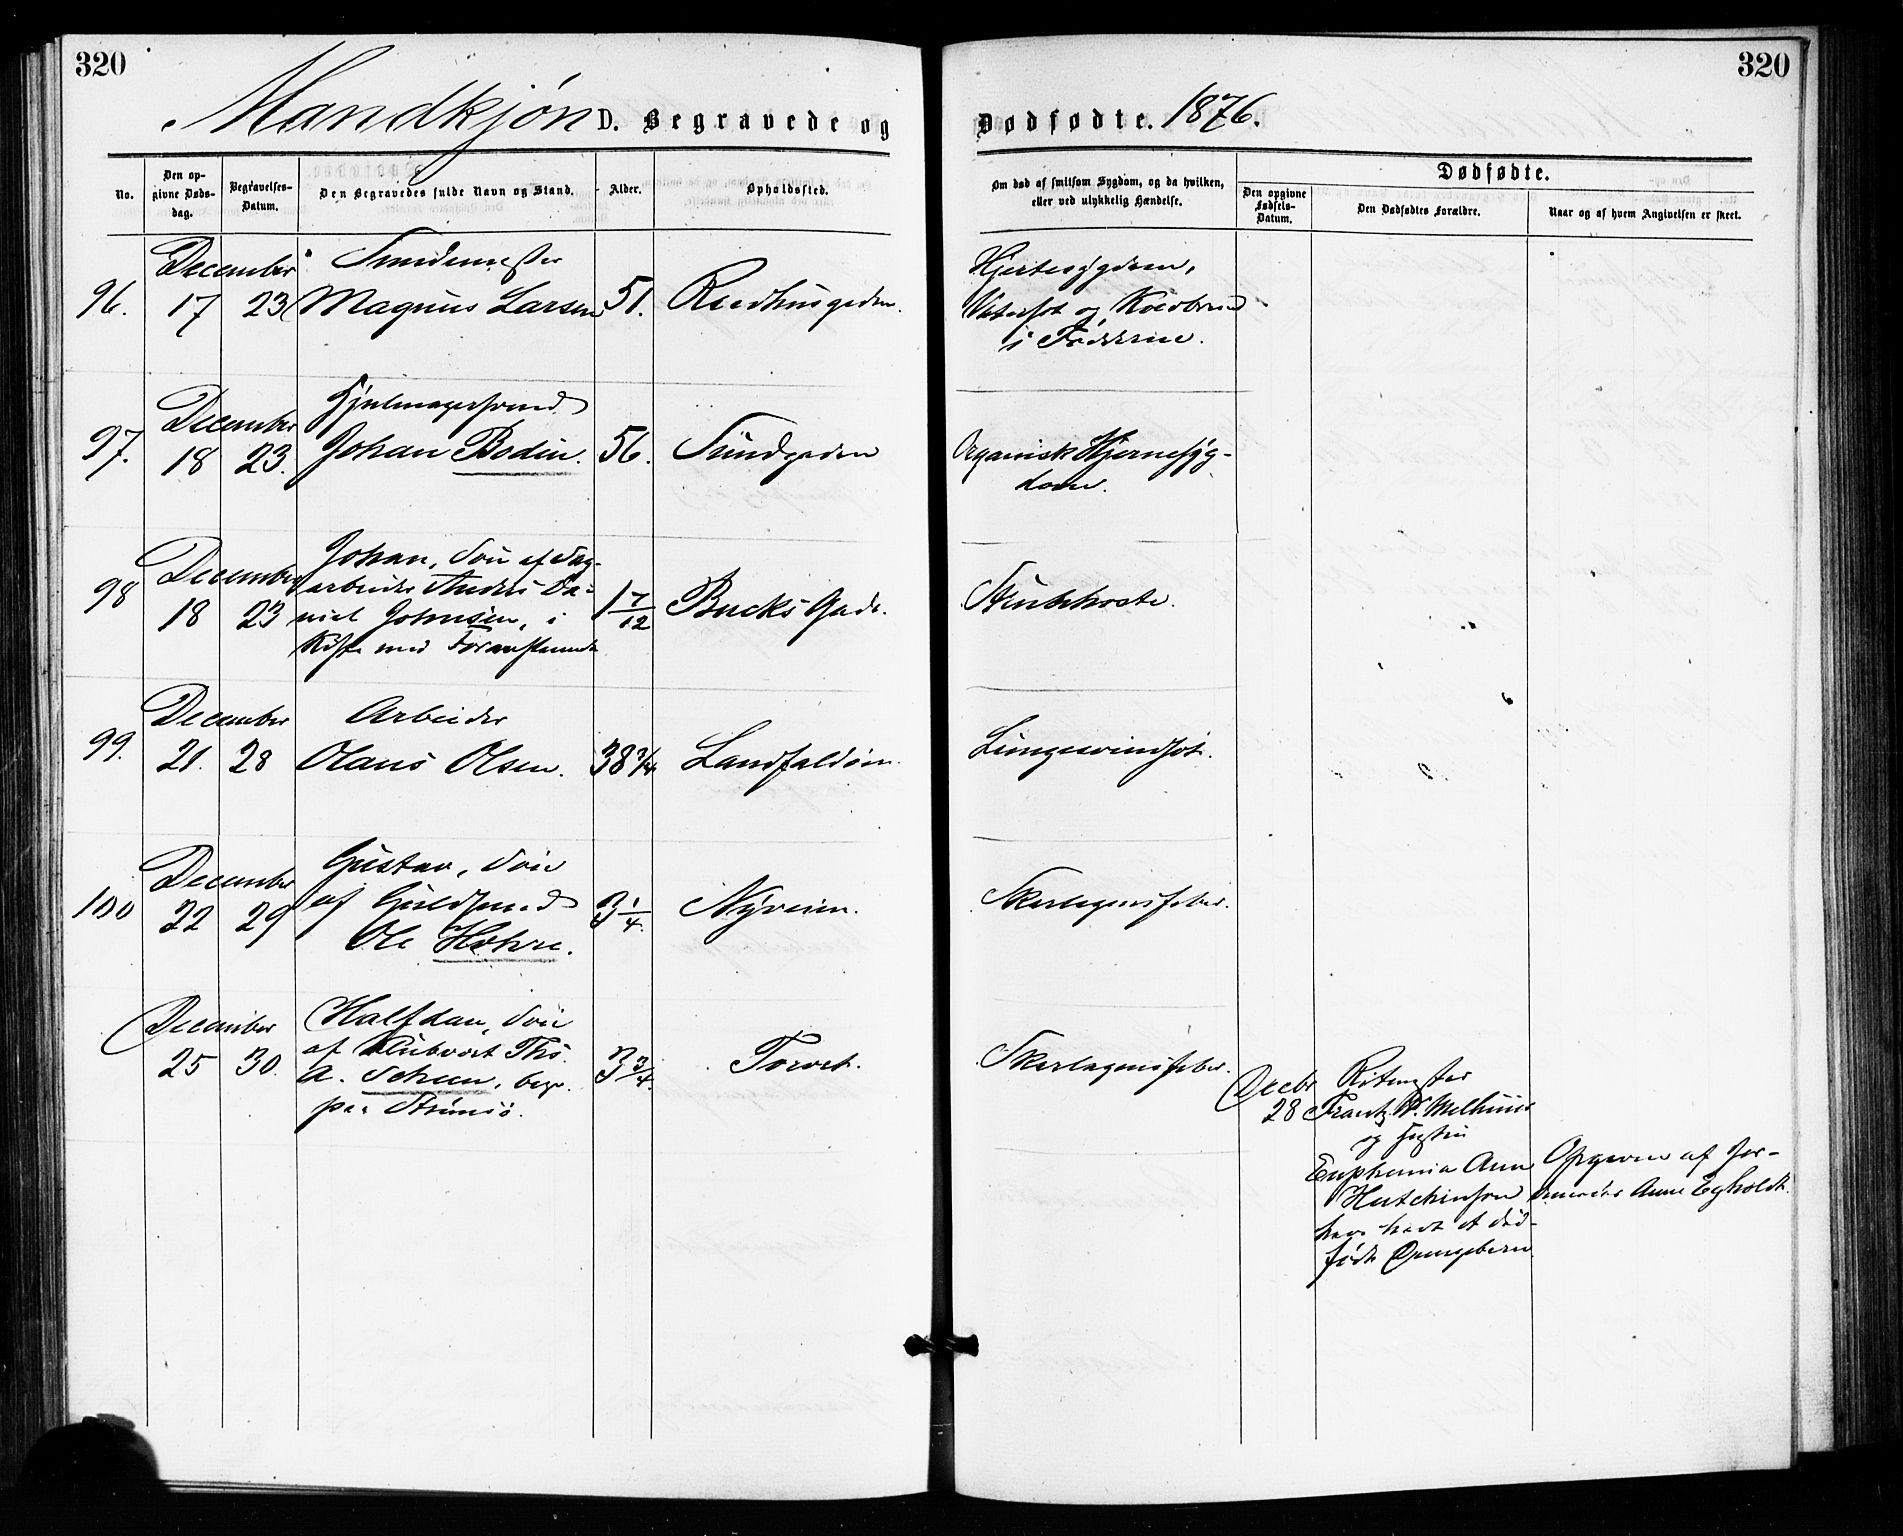 320
320
Mandkjøn D. Begravede og Dødfødte. 1876.
No.
Den op-
givne Døds-
dag.
Begravelses-
Datum.
Den Begravedes fulde Navn og Stand.
Alder.
Opholdssted.
Om død af smitsom Sygdom, og da hvilken,
eller ved ulykkelig Hændelse.
Dødfødte.
Den opgivne
Fødsels-
Datum.
Den Dødfødtes Forældre.
Naar og af hvem Angivelsen er skeet.
December Smedemester
96. 17 23 Magnus Larsen 51. Raadhusgaden.
Hjertesygdom,
Vatersot og Koldbrand
i Fødderne.
December Hjulmagersvend
97. 18 23. Johan Bodin. 56. Sundgaden
Organisk Hjernesyg-
dom.
December Johan, Søn af Dag-
arbeider Anders Da-
98 18 23 niel Johnsen, i 1 7/12 Bucks Gade.
Kiste med Foranstaaende
Strubehoste.
December Arbeider
99. 21. 28 Olaus Olsen. 38 3/4 Landfaldøen.
Lungesvindsot.
December Gustav, Søn
100 22 29 af Guldsmed 3 1/4. Nyveien.
Ole Høhre.
Skarlagensfeber.
December Halfdan, Søn
25 30. af Klubvært Ths. 3 3/4. Torvet.
A. Scheen, begr.
paa Strømsø.
Skarlagensfeber.
Decbr Ritmester
28 Frantz W. Melhuus
og Hustru
Euphemia Ann
Hutchinson
have havt et død-
født Drengebarn.
Opgiven af Jor-
demoder Anne Egholdt.